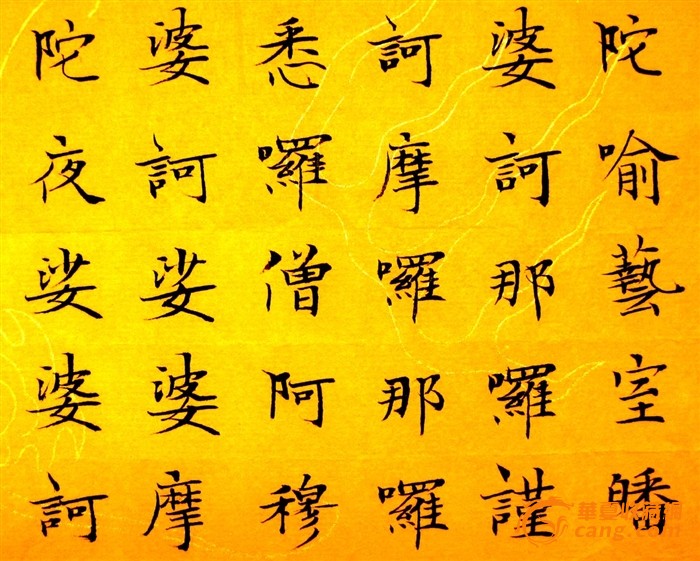 陀喻藝室皤
婆訶那囉謹
訶摩囉那囉
悉囉僧阿穆
婆訶娑婆摩
陀夜娑婆訶
華夏收藏網
cang.com